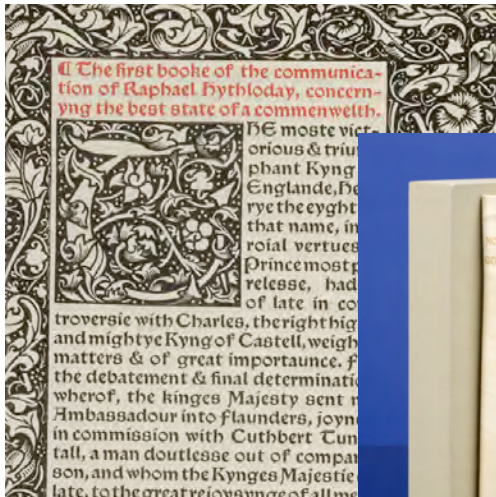 ¶ The first booke of the communica-
tion of Raphael Hythloday, concern-
yng the best state of a commenwelth.
THE moste vict-
orious & triu
phant Kyng
Englande, He
rye the eyght
that name, in
roial vertues
Prince most p
relesse, had
of late in co
troversie with Charles, the right hig
and mightye Kyng of Castell, weigh
matters & of great importaunce. F
the debatement & final determinati
wherof, the kinges Majesty sent m
Ambassadour into flaunders, joyn
in commission with Cuthbert Tun
tall, a man doutlesse out of compa
son, and whom the Kynges Majestie
late, to the great rejoysynge of all me